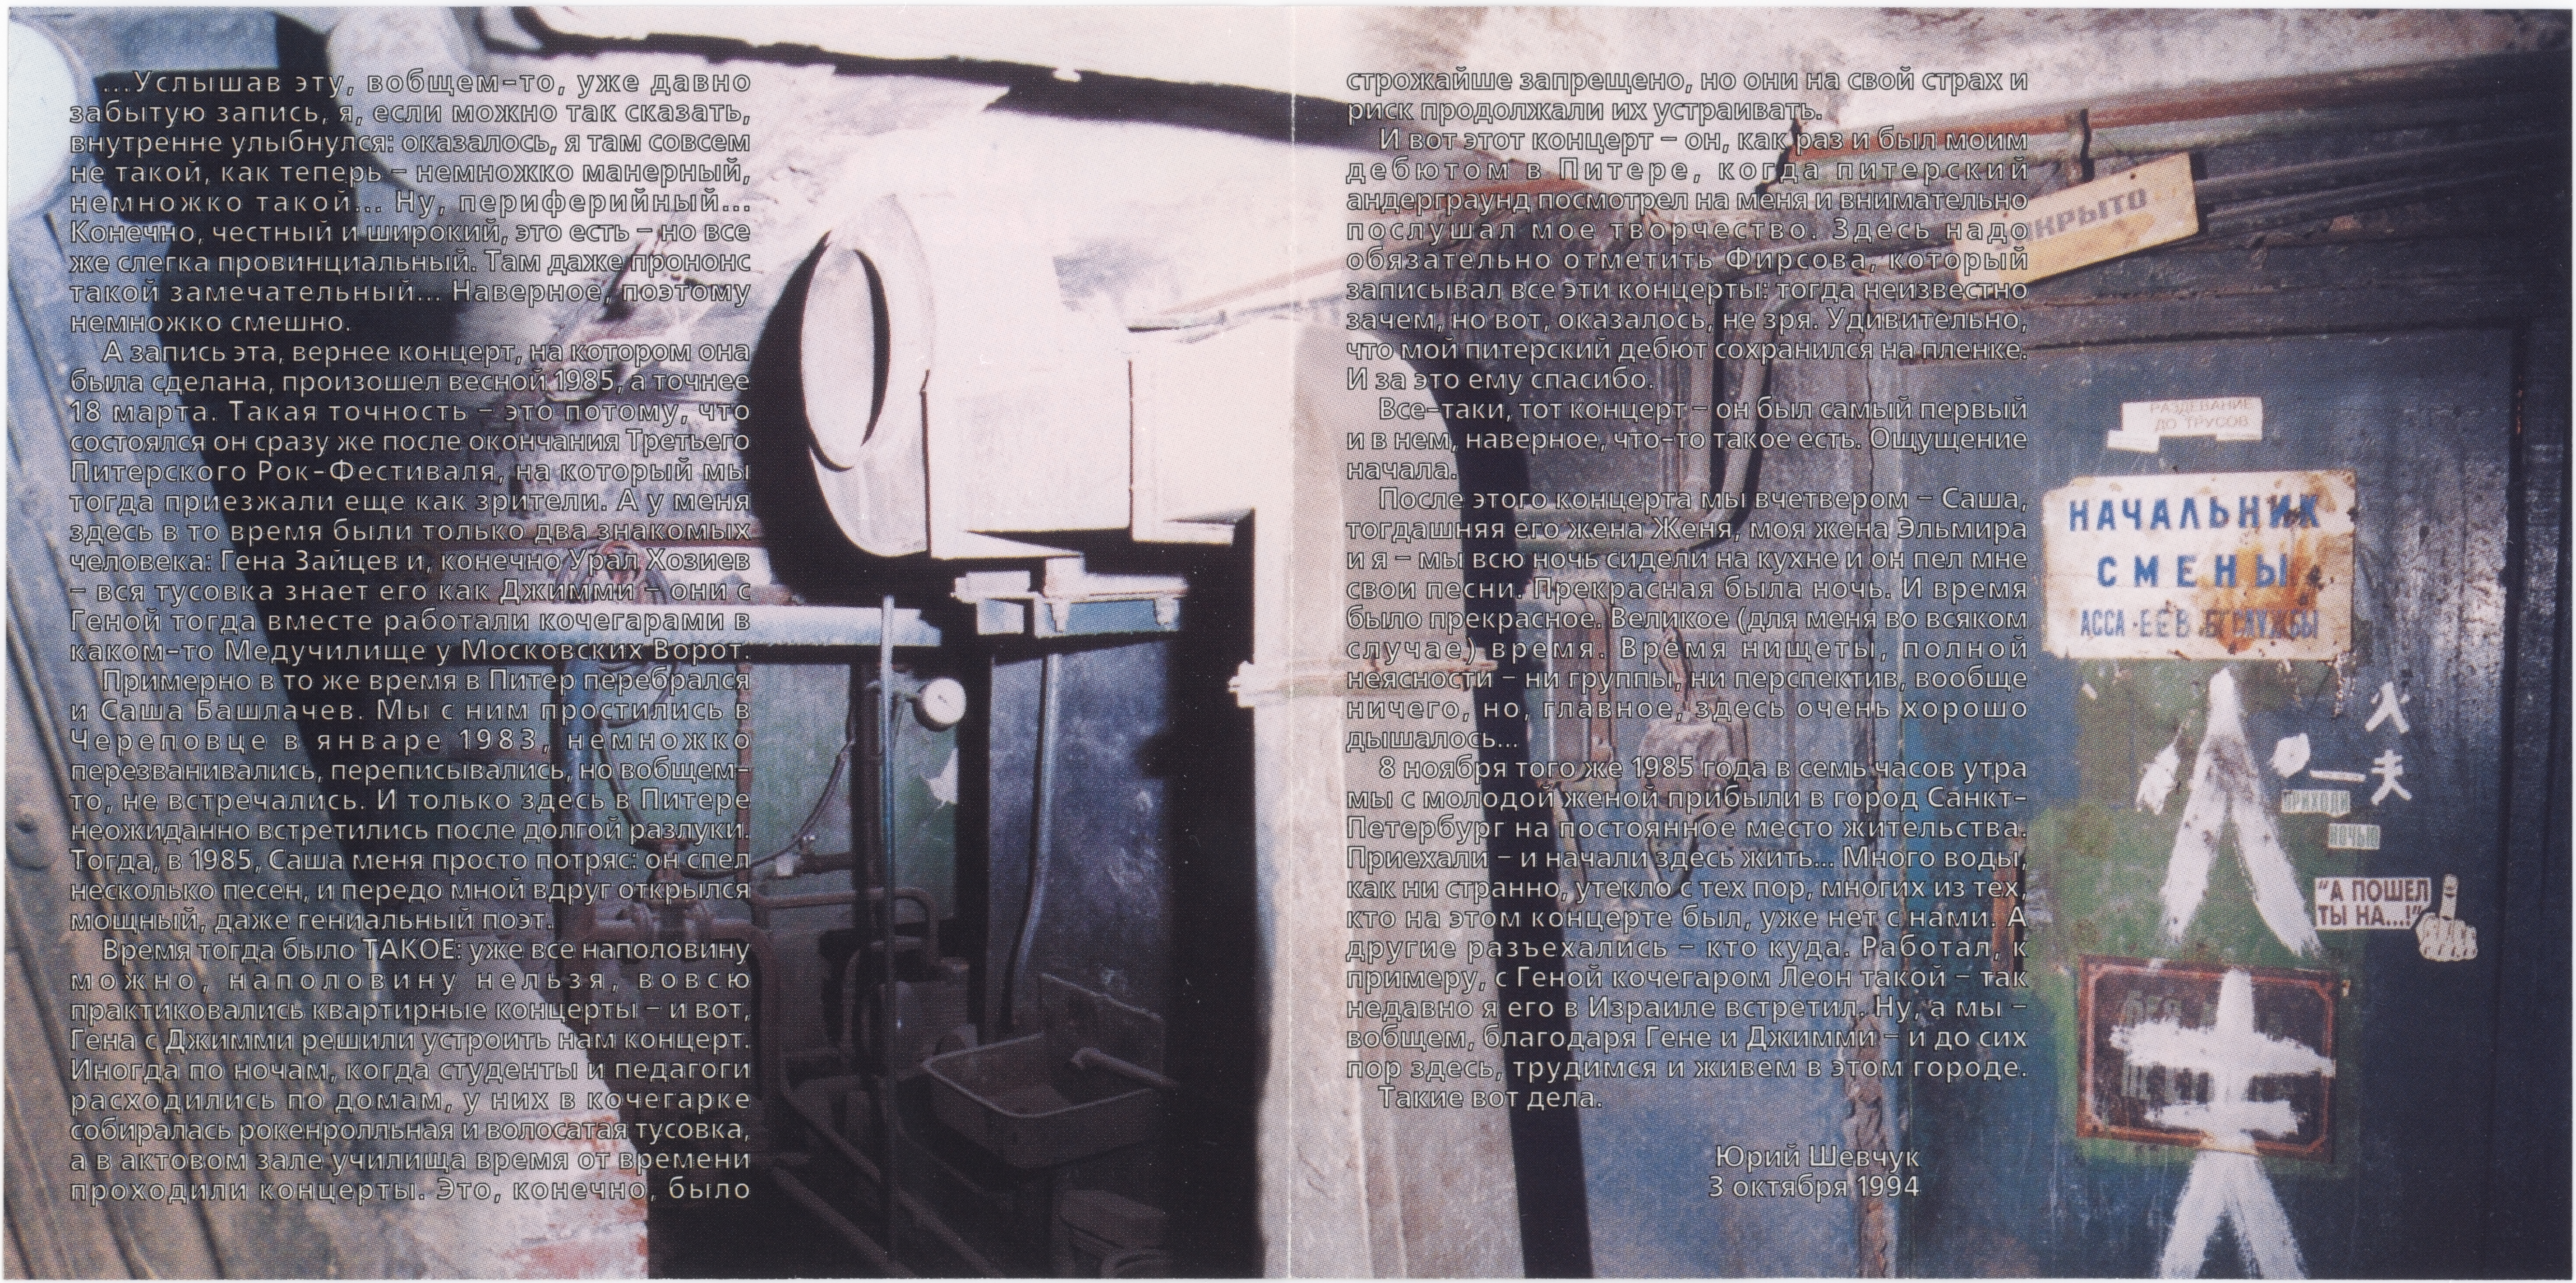 ...Услышав эту, вобщем-то, уже давно
забытую запись, я, если можно так сказать,
внутренне улыбнулся: оказалось, я там совсем
не такой, как теперь – немножко манерный,
немножко такой... Ну, периферийный...
Конечно, честный и широкий, это есть – но все
же слегка провинциальный. Там даже прононс
такой замечательный... Наверное, поэтому
немножко смешно.
А запись эта, вернее концерт, на котором она
была сделана, произошел весной 1985, а точнее
18 марта. Такая точность – это потому, что
состоялся он сразу же после окончания Третьего
Питерского Рок-Фестиваля, на который мы
тогда приезжали еще как зрители. А у меня
здесь в то время были только два знакомых
человека: Гена Зайцев и, конечно Урал Хозиев
– вся тусовка знает его как Джимми – они с
Геной тогда вместе работали кочегарами в
каком-то Медучилище у Московских Ворот.
Примерно в то же время в Питер перебрался
и Саша Башлачев. Мы с ним простились в
Череповце в январе 1983, немножко
перезванивались, переписывались, но вобщем-
то, не встречались. И только здесь в Питере
неожиданно встретились после долгой разлуки.
Тогда, в 1985, Саша меня просто потряс: он спел
несколько песен, и передо мной вдруг открылся
мощный, даже гениальный поэт.
Время тогда было ТАКОЕ: уже все наполовину
можно, наполовину нельзя, вовсю
практиковались квартирные концерты – и вот,
Гена с Джимми решили устроить нам концерт.
Иногда по ночам, когда студенты и педагоги
расходились по домам, у них в кочегарке
собиралась рокенролльная и волосатая тусовка,
а в актовом зале училища время от времени
проходили концерты. Это, конечно, было
строжайше запрещено, но они на свой страх и
риск продолжали их устраивать.
И вот этот концерт – он, как раз и был моим
дебютом в Питере, когда питерский
андерграунд посмотрел на меня и внимательно
послушал мое творчество. Здесь надо
обязательно отметить Фирсова, который
записывал все эти концерты: тогда неизвестно
зачем, но вот, оказалось, не зря. Удивительно,
что мой питерский дебют сохранился на пленке.
И за это ему спасибо.
Все-таки, тот концерт – он был самый первый
и в нем, наверное, что-то такое есть. Ощущение
начала.
После этого концерта мы вчетвером – Саша,
тогдашняя его жена Женя, моя жена Эльмира
и я – мы всю ночь сидели на кухне и он пел мне
свои песни. Прекрасная была ночь. И время
было прекрасное. Великое (для меня во всяком
случае) время. Время нищеты, полной
неясности – ни группы, ни перспектив, вообще
ничего, но, главное, здесь очень хорошо
дышалось...
8 ноября того же 1985 года в семь часов утра
мы с молодой женой прибыли в город Санкт-
Петербург на постоянное место жительства.
Приехали – и начали здесь жить... Много воды,
как ни странно, утекло с тех пор, многих из тех,
кто на этом концерте был, уже нет с нами. А
другие разъехались – кто куда. Работал, к
примеру, с Геной кочегаром Леон такой – так
недавно я его в Израиле встретил. Ну, а мы –
вобщем, благодаря Гене и Джимми – и до сих
пор здесь, трудимся и живем в этом городе.
Такие вот дела.
Юрий Шевчук
3 октября 1994
ЗАКРЫТО
РАЗДЕВАНИЕ
ДО ТРУСОВ
НАЧАЛЬНИК
СМЕНЫ
АССА
ПРИХОДИ
НОЧЬЮ
"А ПОШЕЛ
ТЫ НА...!"